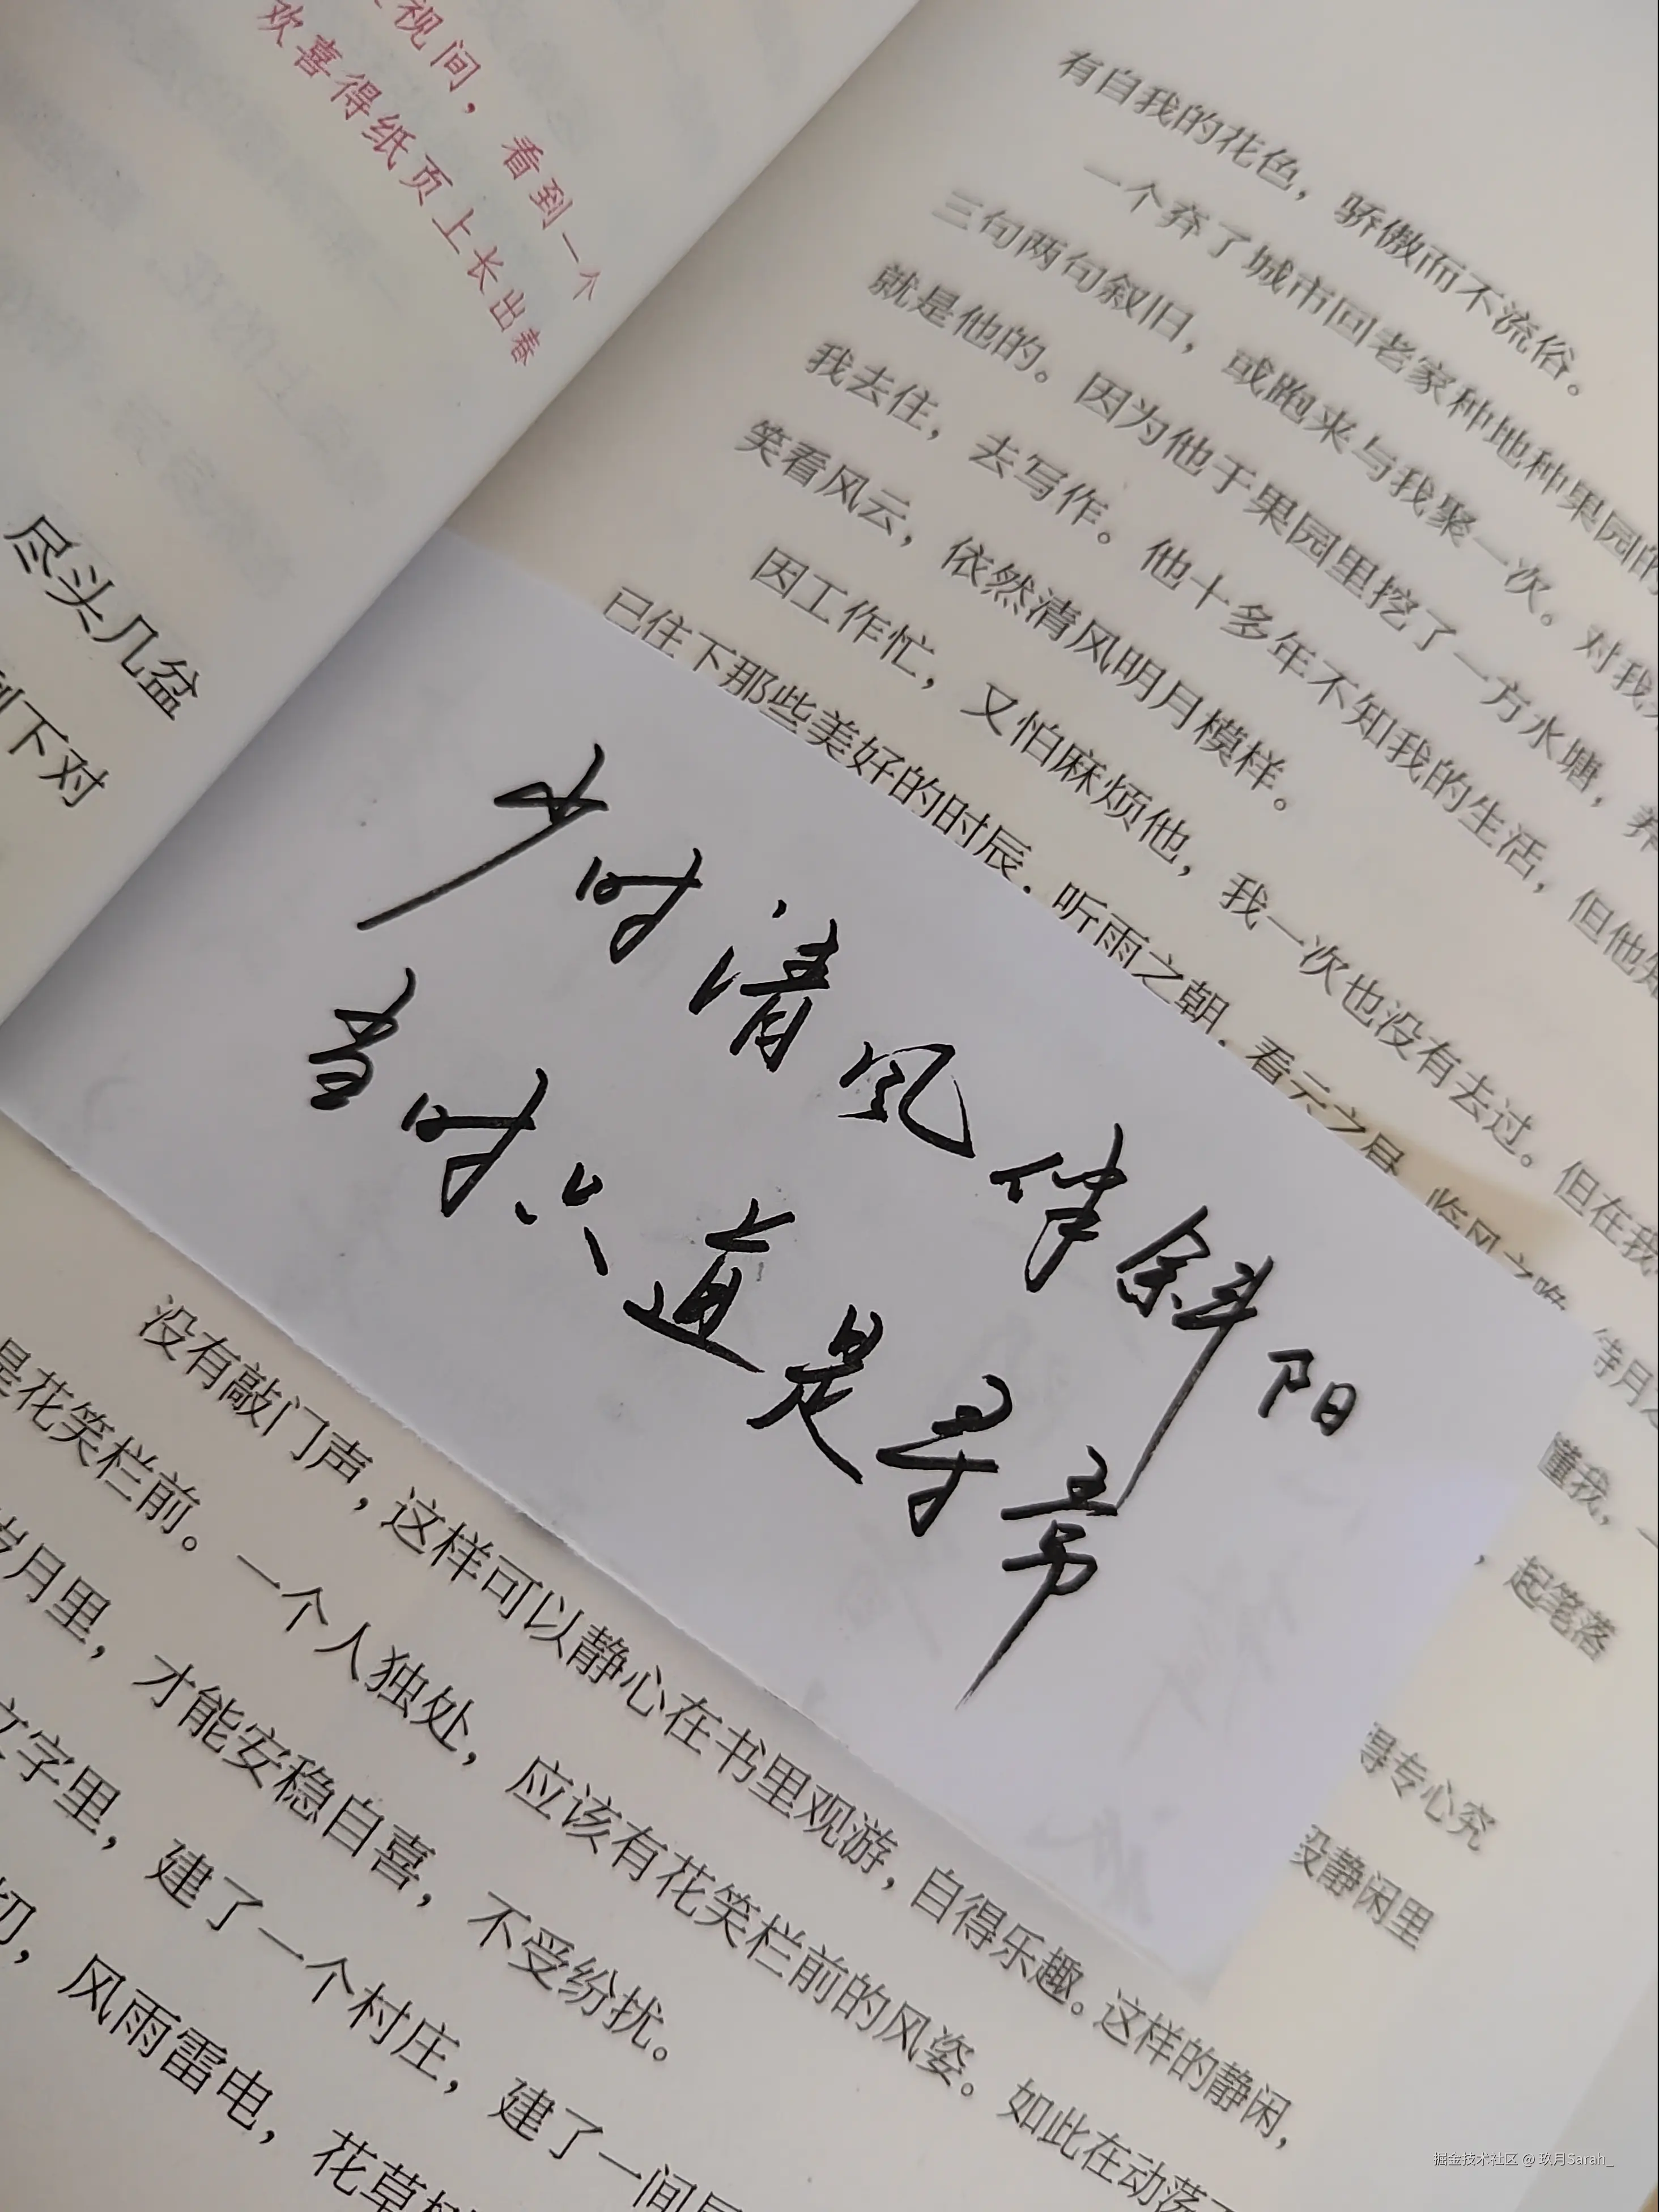 视间，看到一个
欢喜得纸页上长出春
尽头几盆
下对
有自我的花色，骄傲而不流俗。
一个弃了城市回老家种地种果园的
三句两句叙旧，或跑来与我聚一次。对我
就是他的。因为他于果园里挖了一方水塘，养
我去住，去写作。他十多年不知我的生活，但他知
笑看风云，依然清风明月模样。
因工作忙，又怕麻烦他，我一次也没有去过。但在我
已住下那些美好的时辰，听雨之朝，看云之昼，临风之晚
待月之
懂我，一
，起笔落
得专心究
没静闲里
少时清风伴斜阳
当时只道是寻常
没有敲门声，这样可以静心在书里观游，自得乐趣。这样的静闲，
是花笑栏前。一个人独处，应该有花笑栏前的风姿。如此在动荡
岁月里，才能安稳自喜，不受纷扰。
文字里，建了一个村庄，建了一间
切，风雨雷电，花草
掘金技术社区 @ 玖月Sarah_